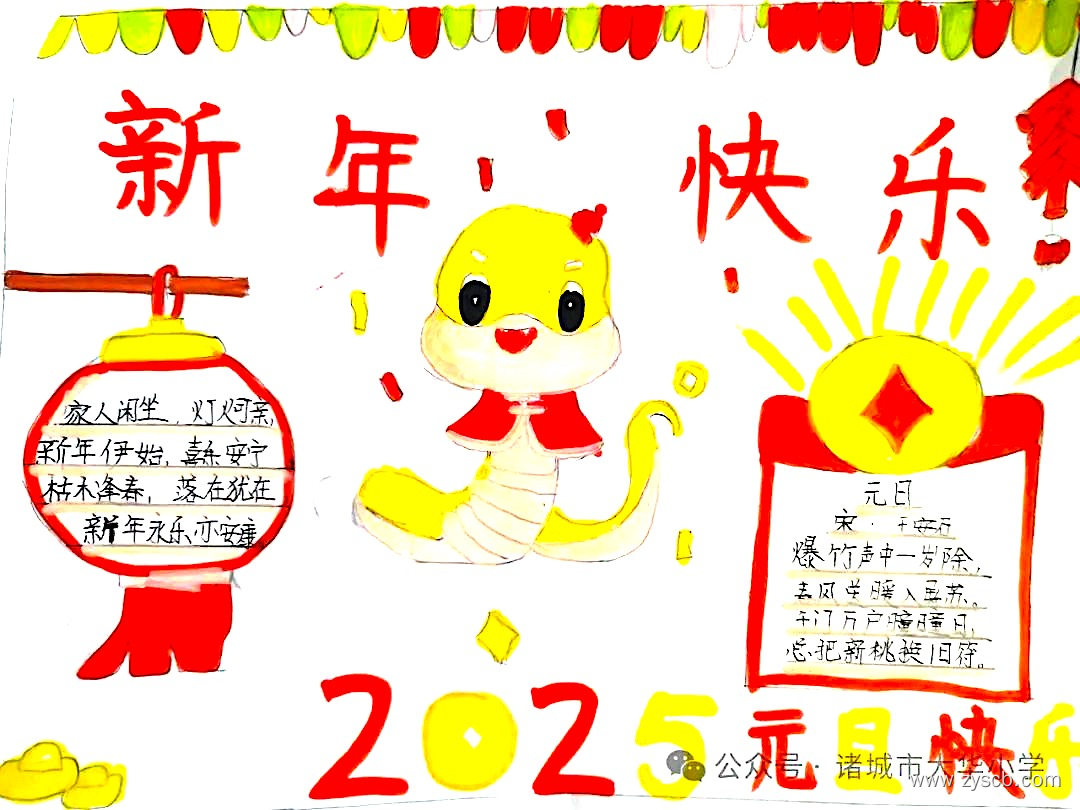 新年快乐
家人闲坐，灯火可亲，
新年伊始，喜乐安宁
枯木逢春，落在犹在
新年永乐亦安康
元日
宋·王安石
爆竹声中一岁除，
春风送暖入屠苏。
千门万户瞳瞳日，
总把新桃换旧符。
2025元旦快乐
公众号·诸城市大华小学
www.zyscb.com